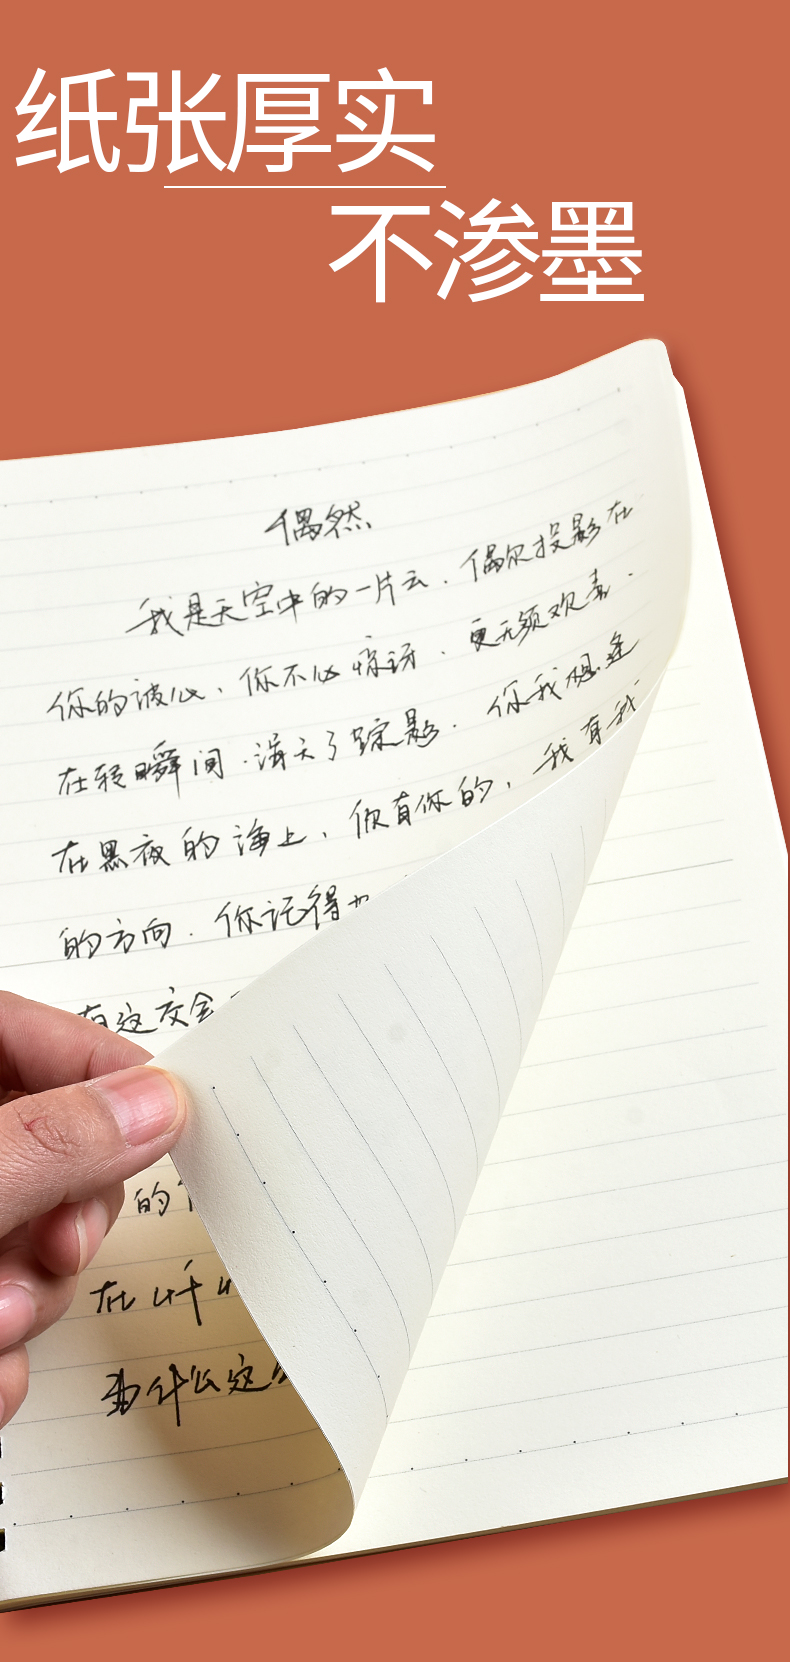 纸张厚实
不渗墨
偶然
我是天空中的一片云．偶尔投影在
你的波心．你不必惊讶．更无须欢喜．
在转瞬间．消灭了踪影．你我相逢
在黑夜的海上，你有你的，我有我
的方向．你记得也
有这交会
的
在
为什么这么